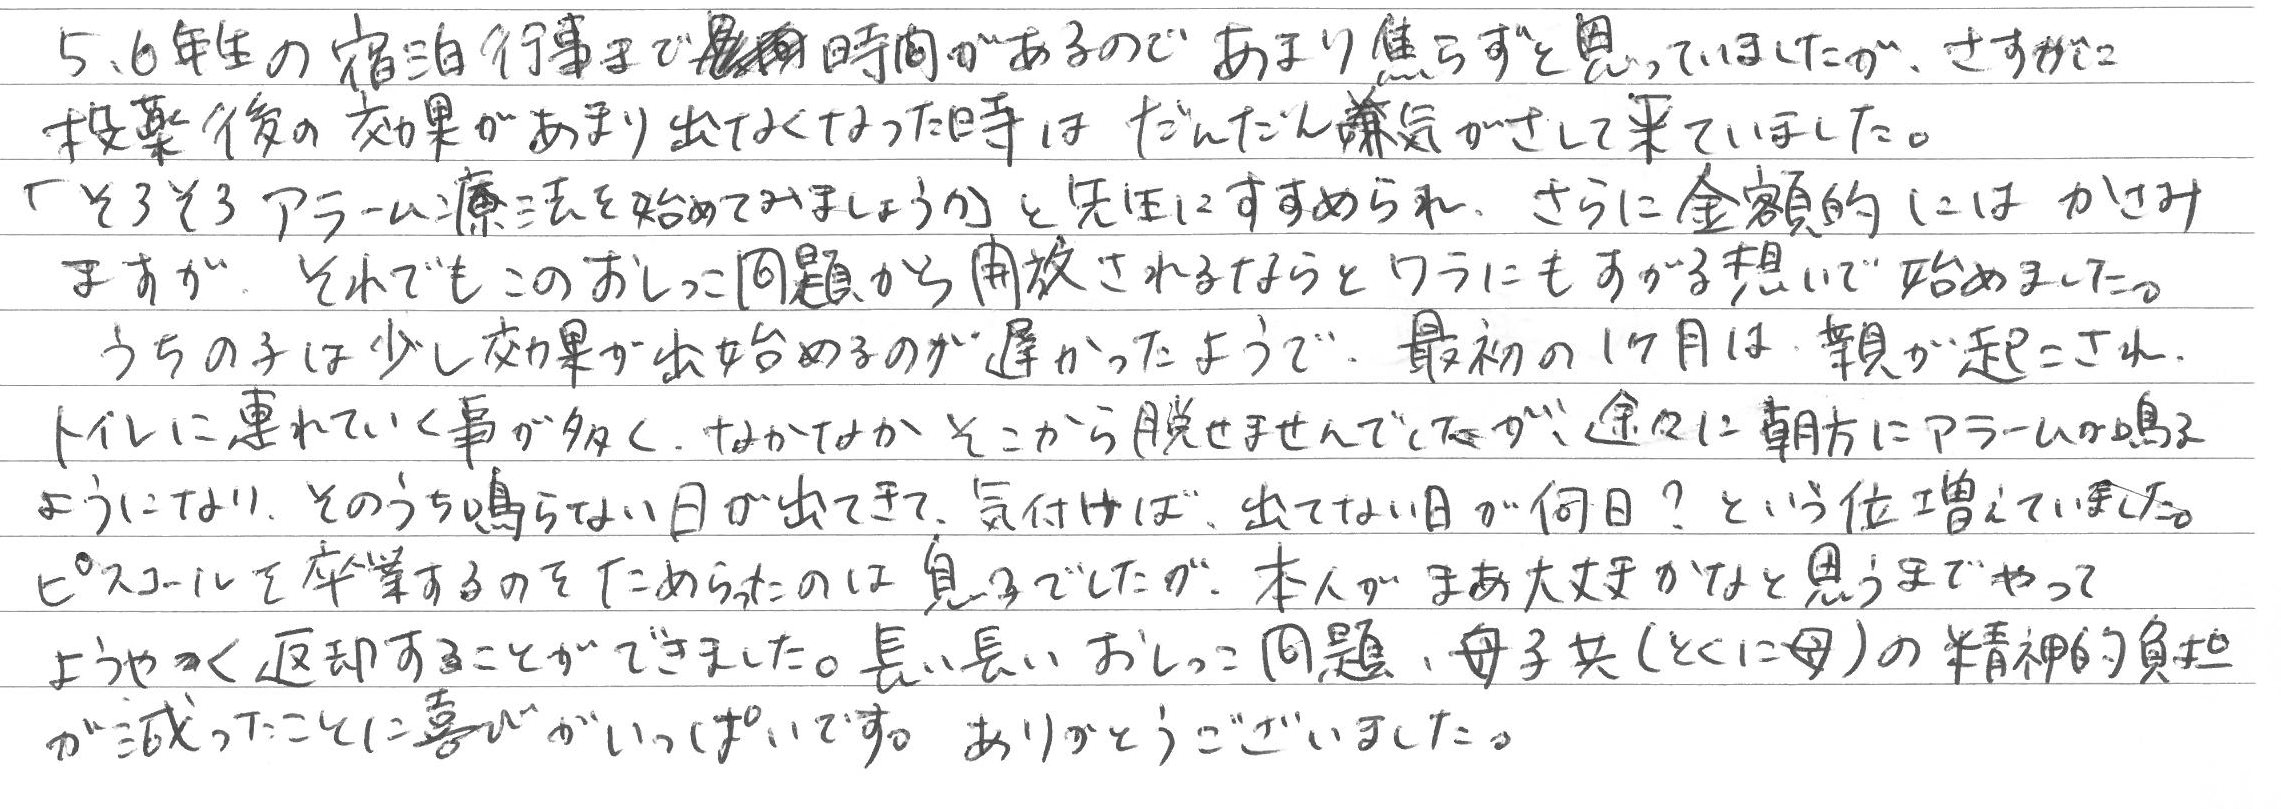 5、6年生の宿泊行事まで時間があるのであまり焦らずと思っていましたが、さすがに
投薬後の効果があまり出なくなった時はだんだん嫌気がさして来ていました。
「そろそろアラーム療法を始めてみましょうか」と先生にすすめられ、さらに金額的にはかさみ
ますが、それでもこのおしっこ問題から開放されるならとワラにもすがる想いで始めました。
うちの子は少し効果が出始めるのが遅かったようで、最初の1ヶ月は、親が起こされ、
トイレに連れていく事が多く、なかなかそこから脱せませんでしたが、徐々に朝方にアラームが鳴る
ようになり、そのうち鳴らない日が出てきて、気付けば、出てない日が何日？という位増えていました。
ピスコールを卒業するのをためらったのは息子でしたが、本人がまあ大丈夫かなと思うまでやって
ようやく返却することができました。長い長いおしっこ問題、母子共(とくに母)の精神的負担
が減ったことに喜びがいっぱいです。ありがとうございました。